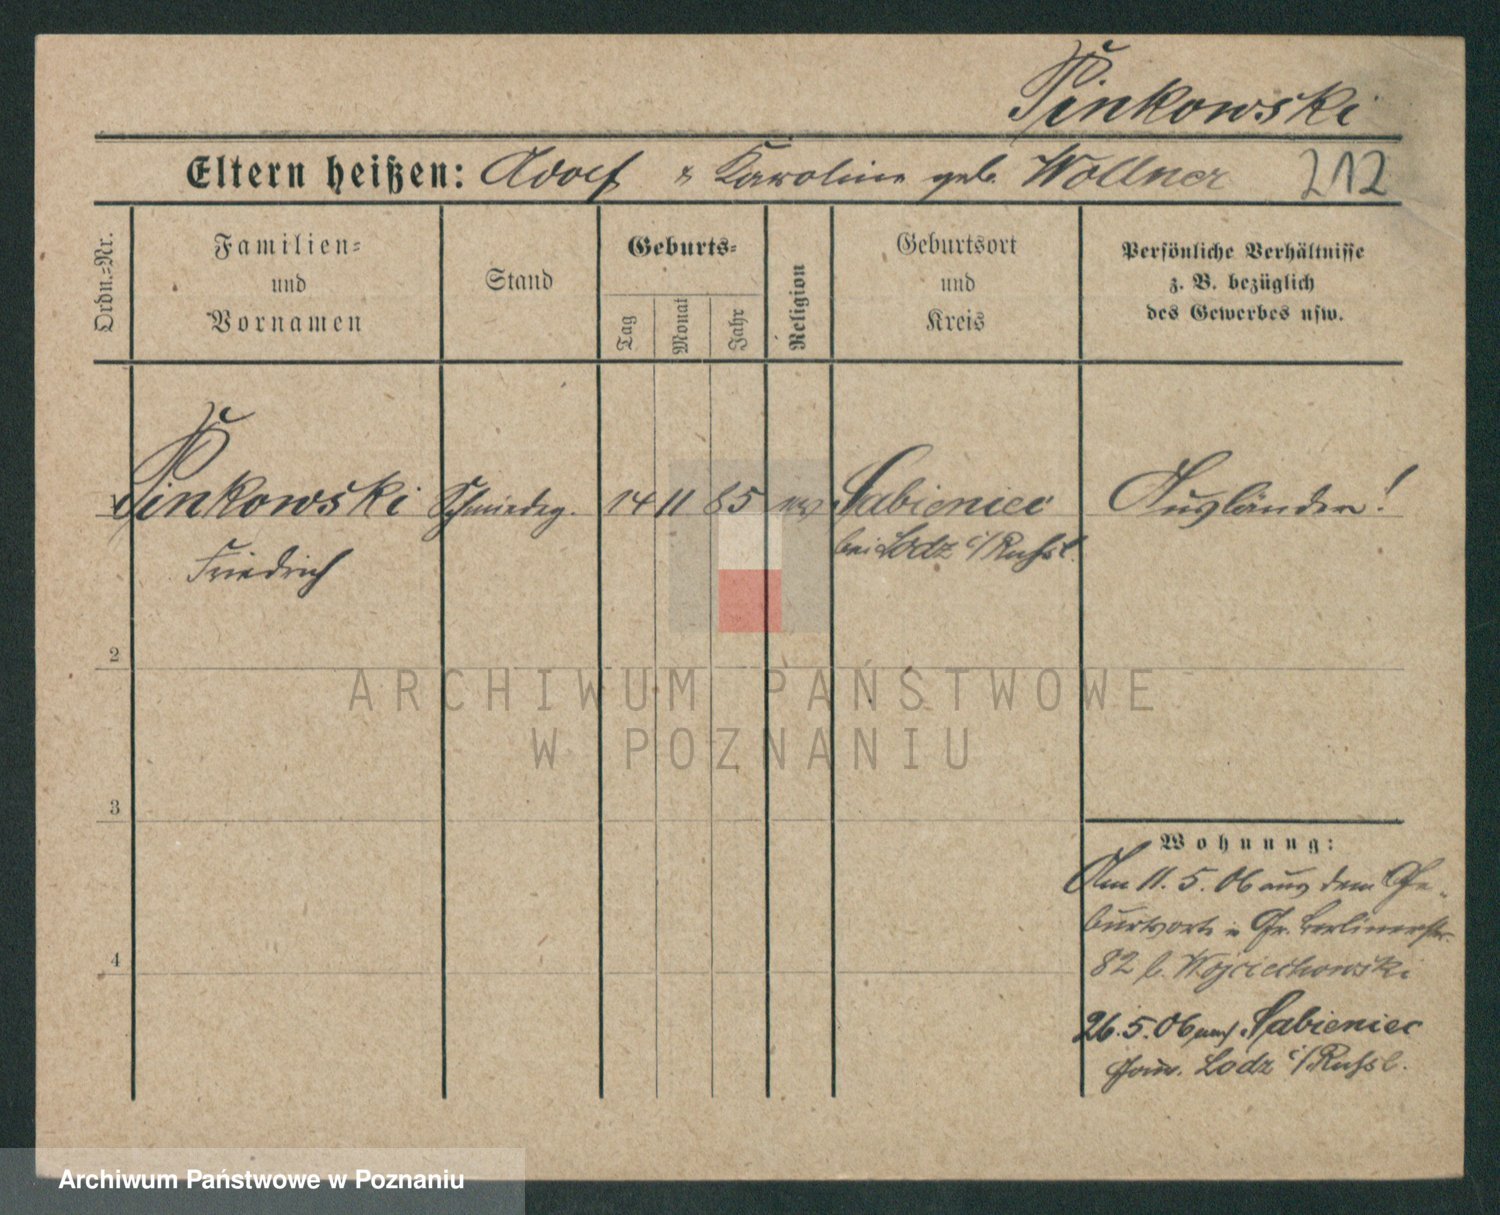 Pinkowski
Eltern heißen: Adolf & Karoline geb. Wollner 212
Ordn.=Nr.
Familien=
und
Vornamen
Stand
Geburts=
Tag
Monat
Jahr
Religion
Geburtsort
und
Kreis
Persönliche Verhältnisse
z. B. bezüglich
des Gewerbes usw.
Pinkowski Schmiedeg. 14 11 85 Ausländer!
Friedrich bei Lodz i/Russl.
2
ARCHIWUM PAŃSTWOWE
W POZNANIU
3
Wohnung:
Am 11. 5. 06 aus dem Ge-
burtsorte n. Gr. Berlinerstr.
82 b. Wojciechowski
4
26. 5. 06 Sabieniec
Gouv. Lodz i/Russl.
Archiwum Państwowe w Poznaniu